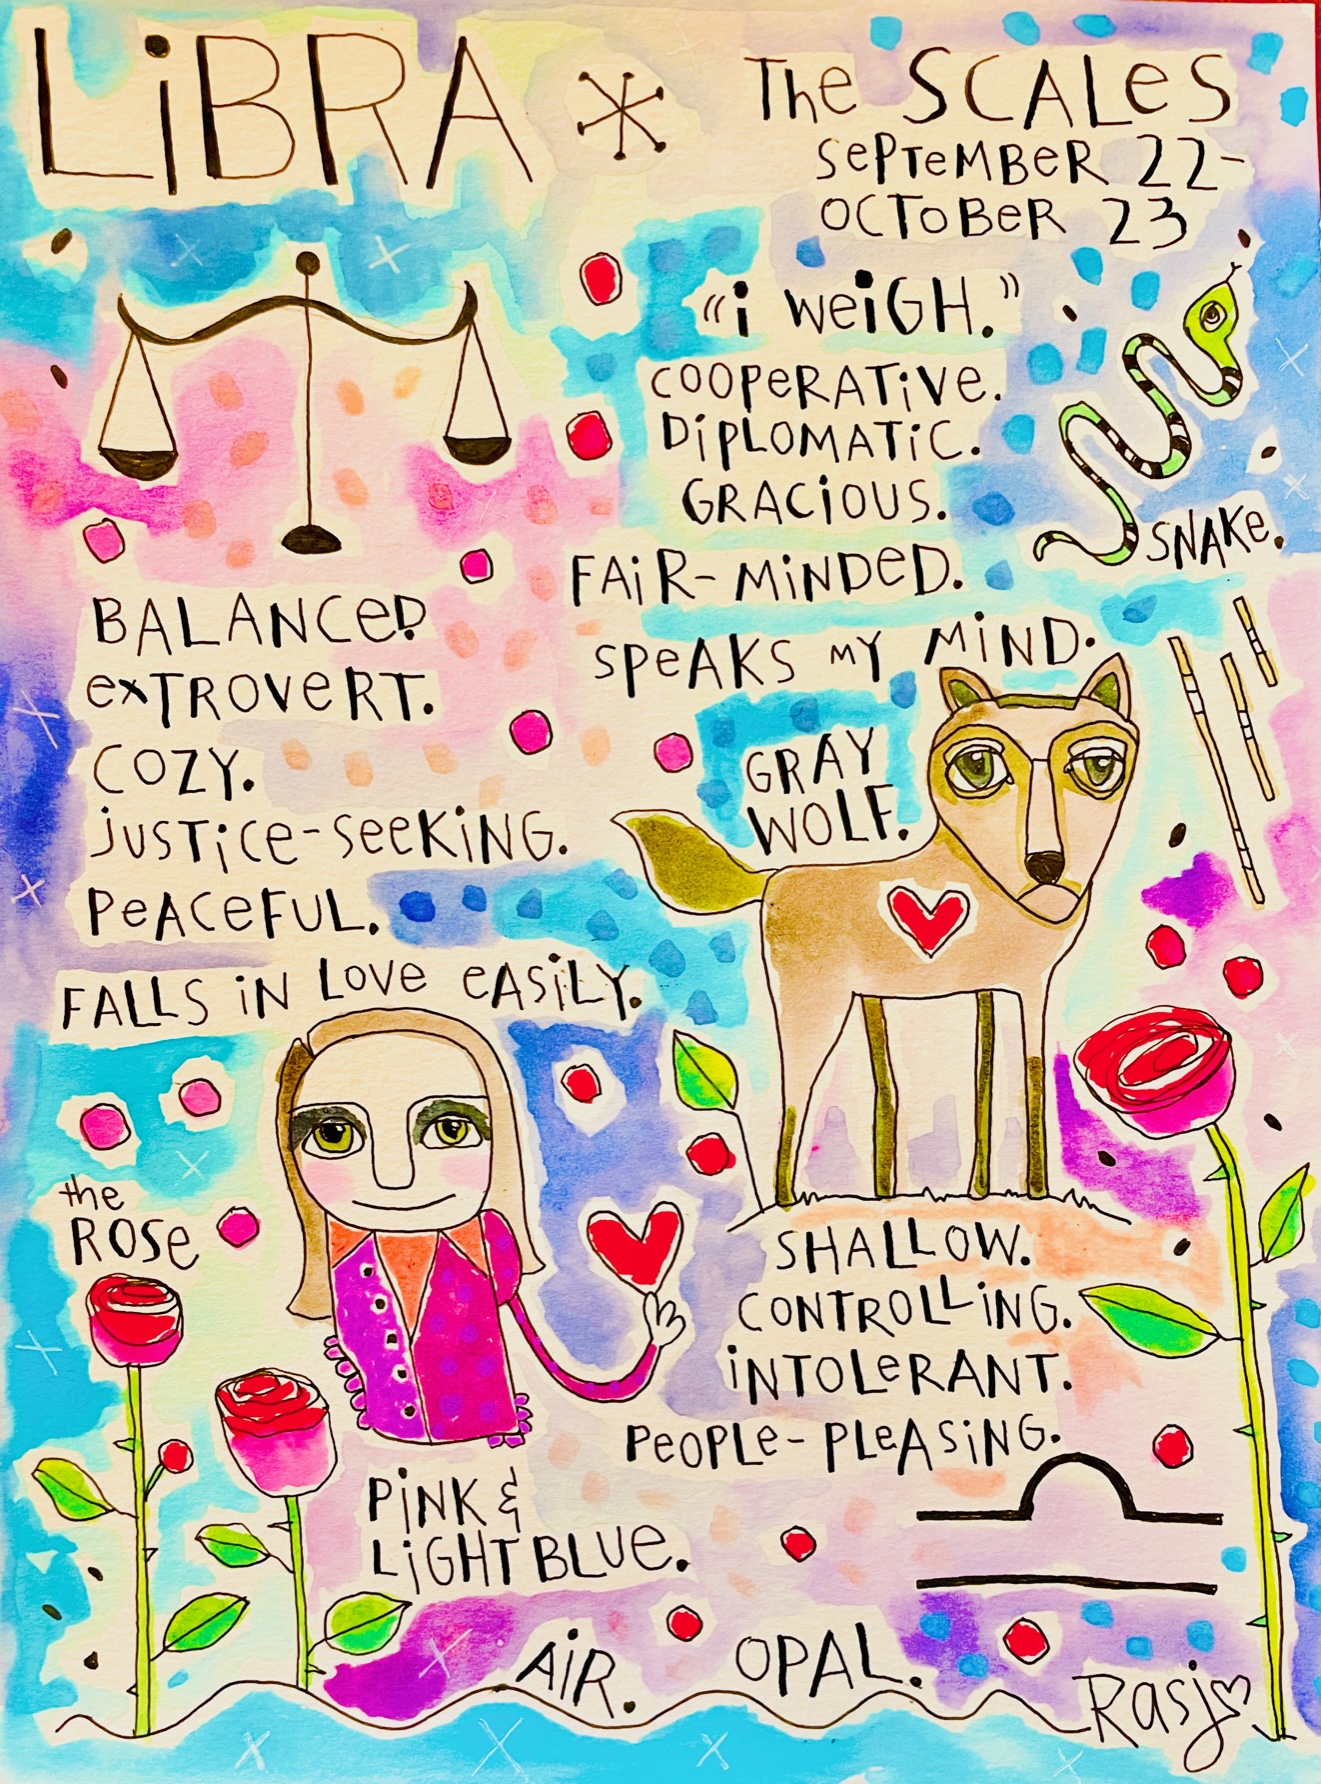 LiBRA
The SCALeS
SePTeMBeR 22-
OCToBeR 23
"i WeiGH."
COOPeRATiVe.
DiPLOMATiC.
GRACiOUS.
FAiR-MiNDeD.
SPeAKS MY MiND.
SNAKe.
BALANCeD
exTROVeRT.
COZY.
jUSTiCe-SeeKiNG.
PeACeFUL.
FALLS iN LOVe eASiLY.
GRAY
WOLF.
the
ROSe
SHALLOW.
CONTROLLiNG.
iNTOLeRANT.
PeOPLe-PLeASiNG.
PiNK &
LiGHT BLUe.
AiR.
OPAL.
Rasj